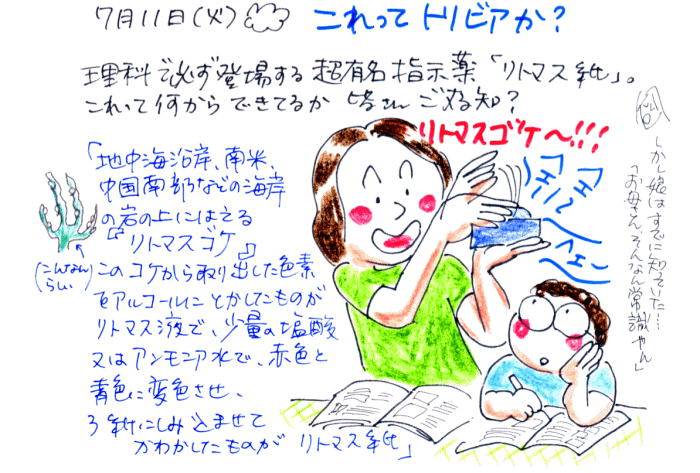 7月11日(火)
これって トリビアか?
理科で必ず登場する超有名指示薬「リトマス紙」。
これって何からできてるか 皆さん ご存知?
リトマスゴケ〜!!!
「地中海沿岸、南米、
中国南部などの海岸
の岩の上にはえる
『リトマスゴケ』
(こんなん
らしい)
このコケから取り出した色素
をアルコールにとかしたものが
リトマス液で、少量の塩酸
又はアンモニア水で、赤色と
青色に変色させ、
ろ紙にしみこませて
かわかしたものが リトマス紙」
へェー
へェー
へェー
しかし娘はすでに知っていた…
「お母さん、そんなん常識やん」